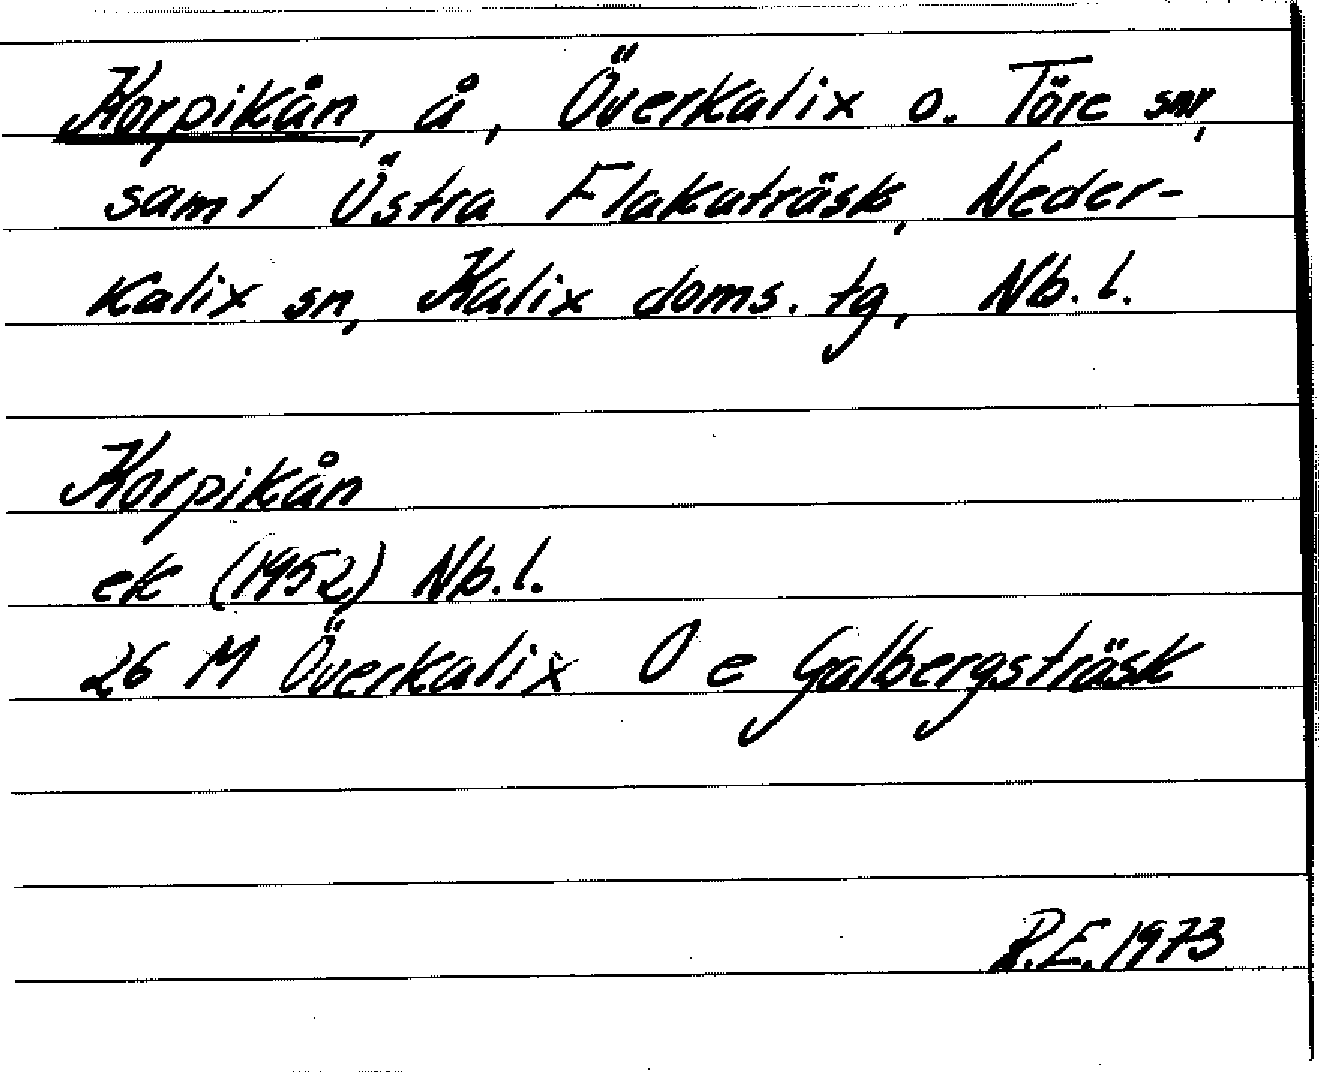 Korpikån, å, Överkalix o. Töre snr,
samt Östra Flakaträsk, Neder-
Kalix sn, Kalix doms. tg, Nb. l.
Korpikån
ek (1952) Nb. l.
26 M Överkalix O e Galbergsträsk
R.E. 1973